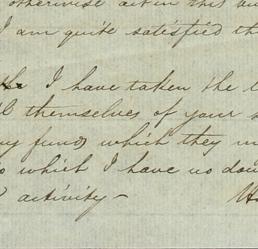 otherwise act in this
I am quite satisfied th
I have taken the l
themselves of your s
y fund, which they m
o which I have no dou
activity –